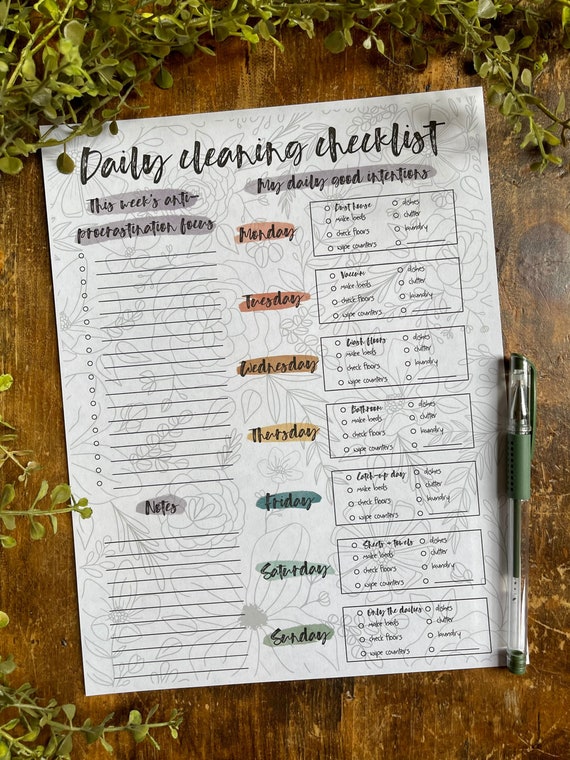 Daily cleaning checklist
This week's anti-
procrastination focus
My daily good intentions
Monday
Dust house
make beds
check floors
wipe counters
dishes
clutter
laundry
Tuesday
Vaccum
make beds
check floors
wipe counters
dishes
clutter
laundry
Wednesday
Wash floors
make beds
check floors
wipe counters
dishes
clutter
laundry
Thursday
Bathroom
make beds
check floors
wipe counters
dishes
clutter
laundry
Notes
Friday
Catch-up day
make beds
check floors
wipe counters
dishes
clutter
laundry
Saturday
Sheets + towels
make beds
check floors
wipe counters
dishes
clutter
laundry
Sunday
Only the dailies
make beds
check floors
wipe counters
dishes
clutter
laundry